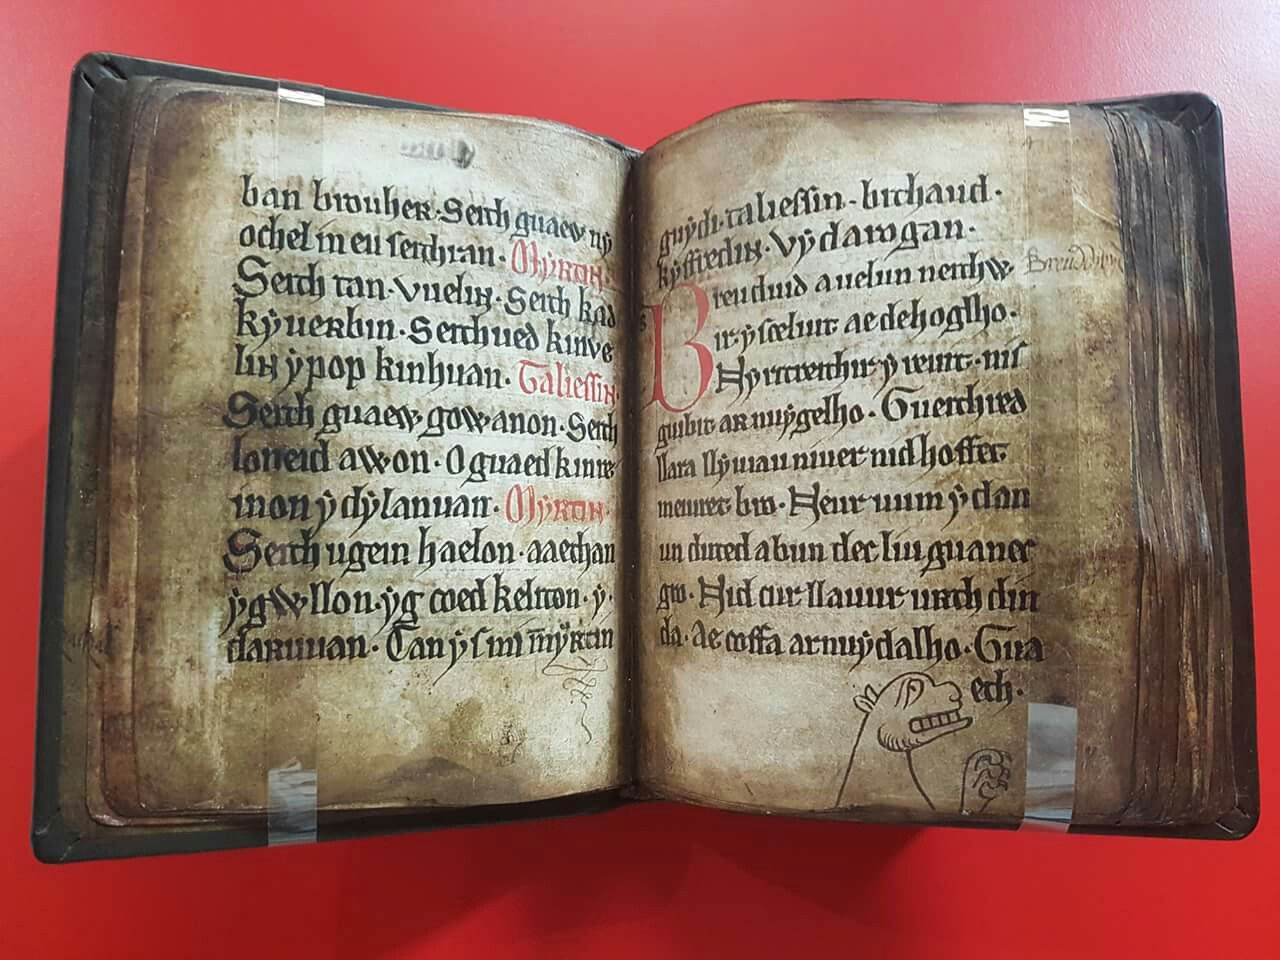 ban brouher. Seith guaew nÿ
ochel in eu seithran. Mÿrtin.
Seith tan. vuelin. Seith kad
kÿuerbin. Seithued kinve
lin ÿ pop kinhuan. Taliessin.
Seith guaew gowanon. Seith
loneid awon. O guaed kinre
inon ÿ dÿlanuan. Mÿrtin.
Seith ugein haelon. aaethan
ÿgwllon. ÿg coed keliton. ÿ.
daruuan. Can ÿs mi mÿrtin
guÿdi. taliessin. bithaud.
kÿffredin. vÿ darogan.
Breuduid a uelun neithwir. ÿ
Breuddwyd
scelur ae dehoglho.
Nÿ ritreithir ÿ reuit. nis
guibit ar nuÿ gelho. Gueithred
llara llÿuiau niuer nid hoffet
meuret bro. Neur uum ÿ dan
un duted a bun dec liu guaner
gro. Nid cur llauur urth din
da. Ae coffa ar nuÿ dalho. Gua
eth.